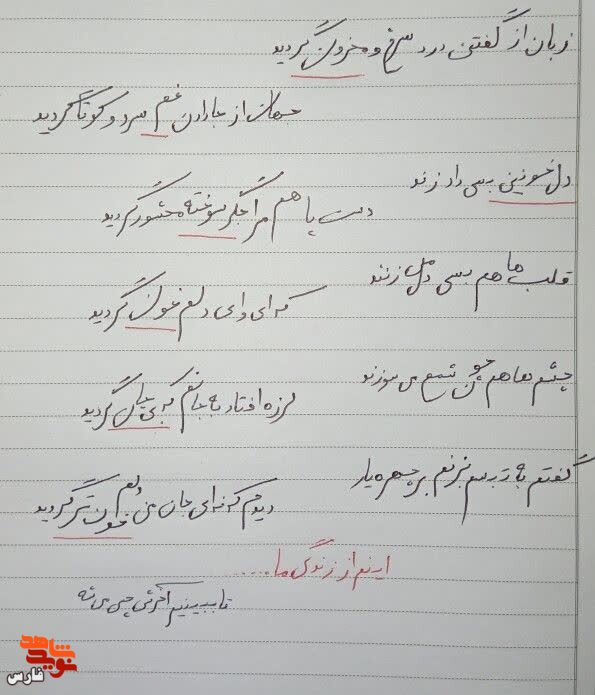 زبان از گفتن درد سرخ و محزون گردید
جهان از جا دادن غم سرد و کوتا گردید
دل خونین بسی داد زند
دست پا هم مرا جگر سوخته محشور گردید
قلب ها هم بسی دل زنند
که ای وای دلم خون گردید
چشم ها هم چون شمع می سوزند
لرزه افتاد به جانم که بی جان گردید
گفتم به تبسم بزنم بر چهره یار
دیدم که نه ای جان من دلم خون تر گردید
اینم از زندگی ما.....
تا ببینیم آخرش چی می شه
شاهد
نوید
فارس